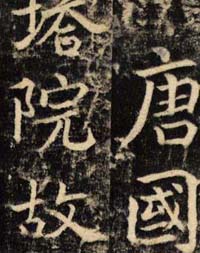 唐國
塔院故